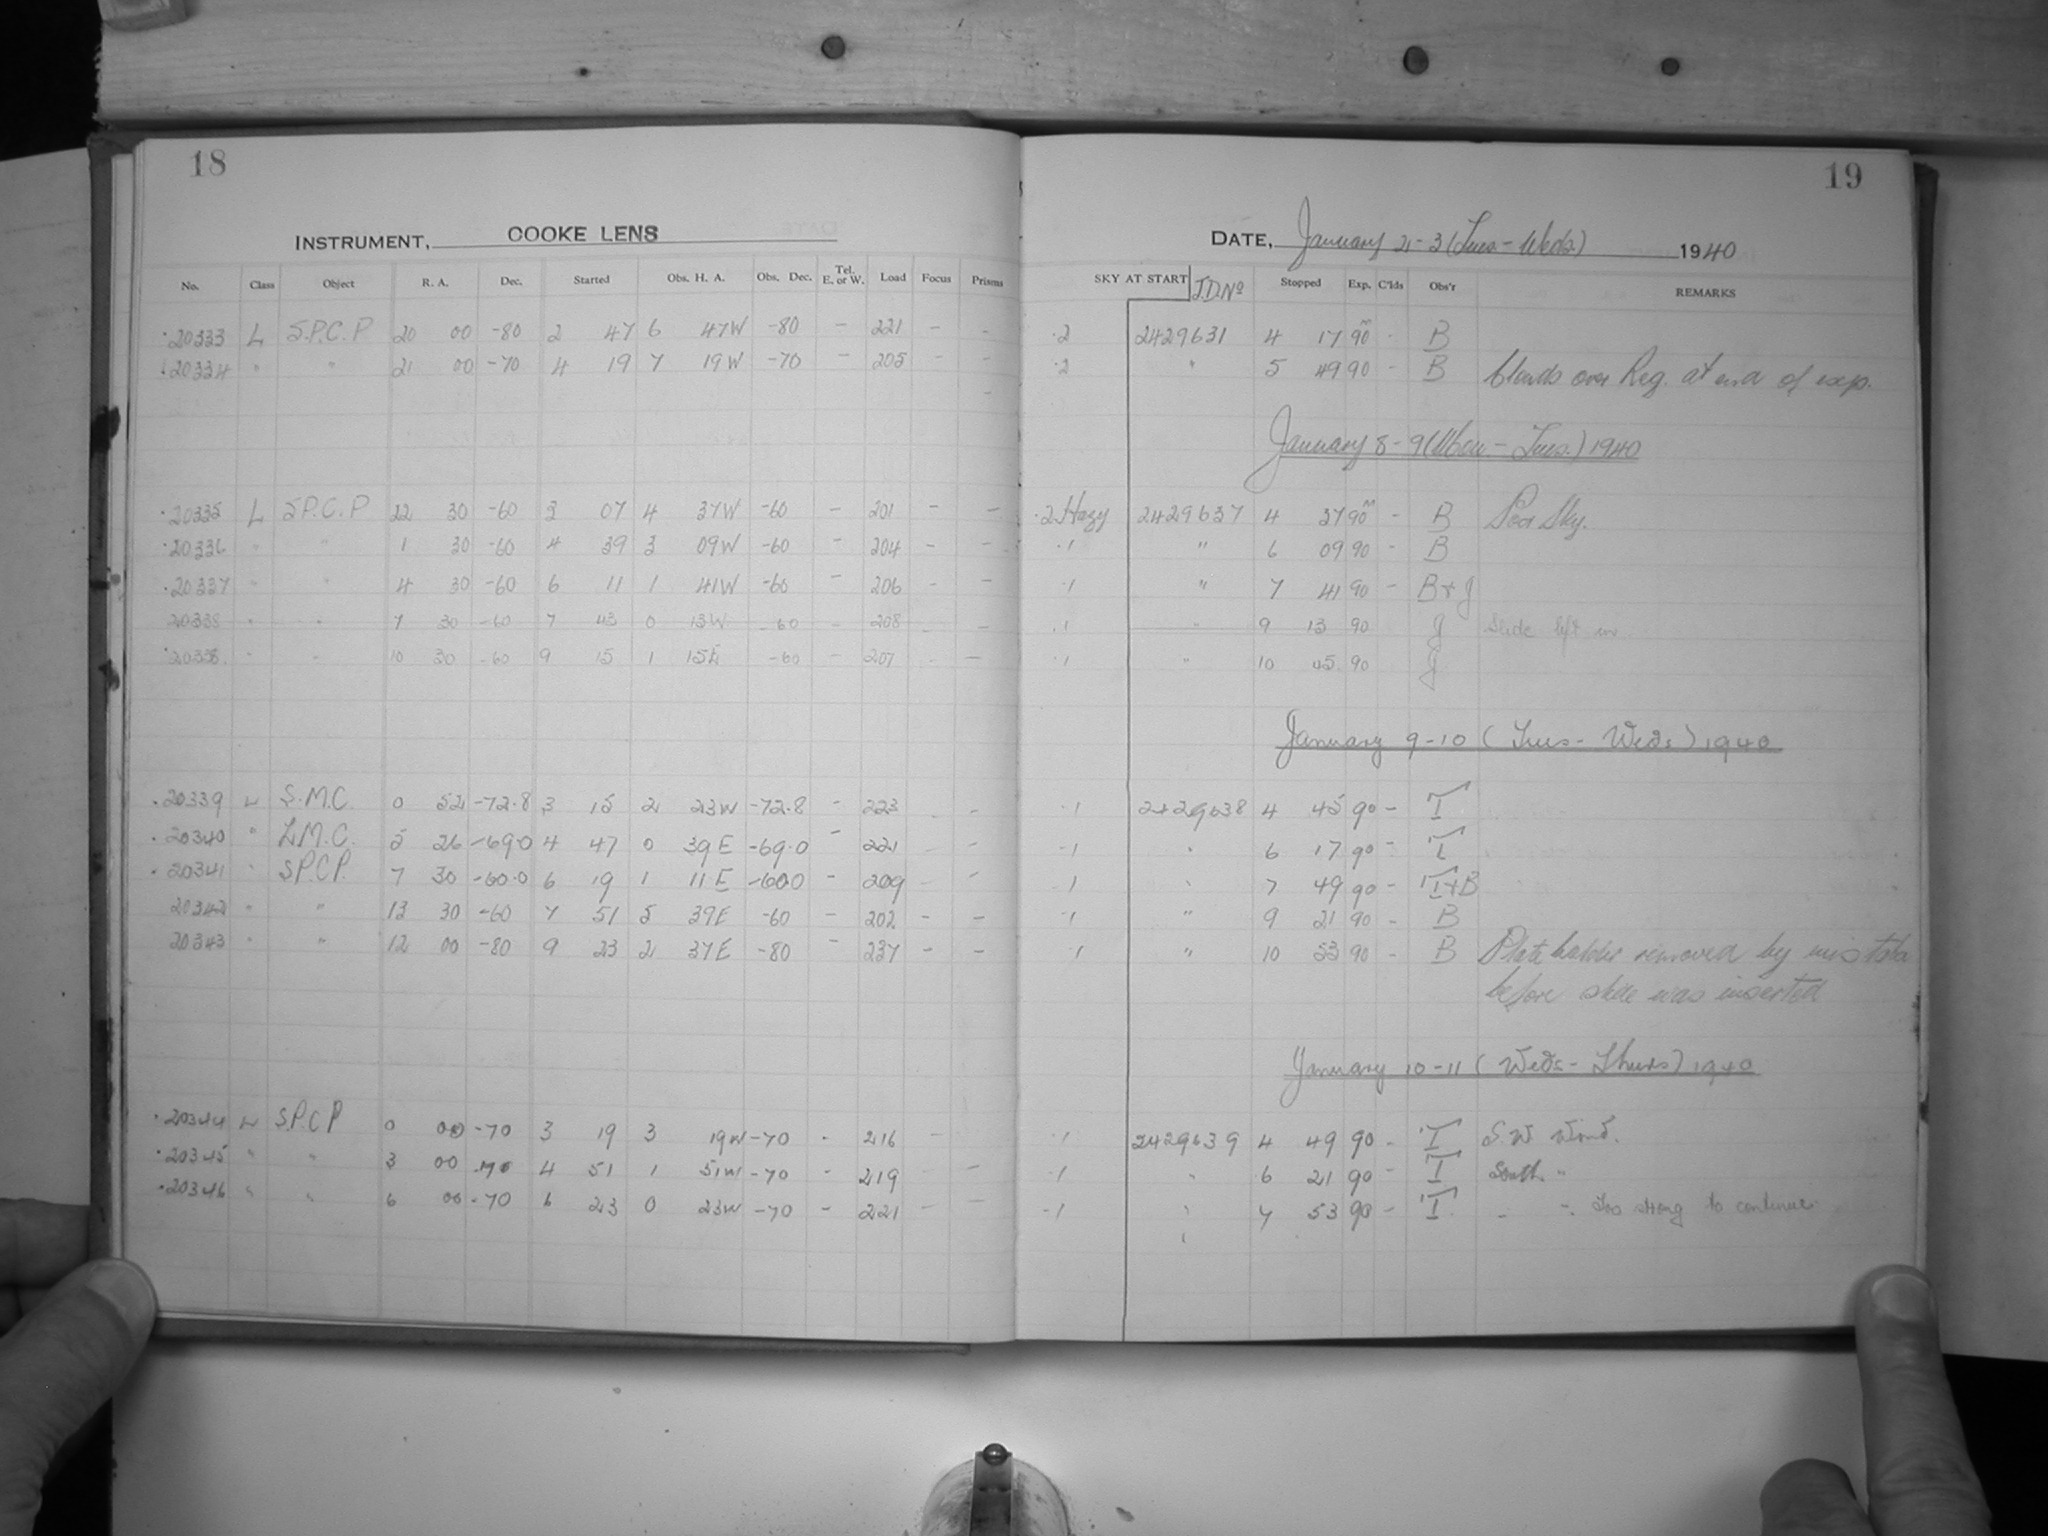 18
INSTRUMENT, COOKE LENS
No. Class Object R. A. Dec. Started Obs. H. A. Obs. Dec. Tel. E. or W. Load Focus Prisms
·20333 L S.P.C.P 20 00 -80 2 47 6 47W -80 - 221 - -
20334 " " 21 00 -70 4 19 7 19W -70 - 205 - -
·20335 L S.P.C.P 22 30 -60 3 07 4 37W -60 - 201 - -
·20336 " " 1 30 -60 4 39 3 09W -60 - 204 - -
·20337 " " 4 30 -60 6 11 1 41W -60 - 206 - -
20338 " " 7 30 -60 7 43 0 13W -60 - 208 - -
·20338 " " 10 30 -60 9 15 1 15E -60 - 207 - -
·20339 L S.M.C. 0 52 -72.8 3 15 2 23W -72.8 - 223 - -
·20340 " L.M.C. 5 26 -69.0 4 47 0 39E -69.0 - 221 - -
·20341 " S.P.C.P. 7 30 -60.0 6 19 1 11E -60.0 - 209 - -
20342 " " 13 30 -60 7 51 5 39E -60 - 202 - -
20343 " " 12 00 -80 9 23 2 37E -80 - 237 - -
·20344 L S.P.C.P 0 00 -70 3 19 3 19W -70 - 216 -
·20345 " " 3 00 -70 4 51 1 51W -70 - 219 - -
·20346 " " 6 00 -70 6 23 0 23W -70 - 221 - -
19
DATE, January 2-3 (Tues-Weds) 1940
SKY AT START J.D.No Stopped Exp. C'lds Obs'r REMARKS
·2 2429631 4 17 90m - B
·2 " 5 49 90 - B Clouds over Reg. at end of exp.
January 8-9 (Mon-Tues.) 1940
·2 Hazy 2429637 4 37 90m - B Poor Sky.
·1 " 6 09 90 - B
·1 " 7 41 90 - B+J
·1 " 9 13 90 J Slide left in
·1 " 10 45 90 J
January 9-10 (Tues-Weds) 1940
·1 2429638 4 45 90 - T
·1 " 6 17 90 - T
·1 " 7 49 90 - T+B
·1 " 9 21 90 - B
·1 " 10 53 90 - B Plate holder removed by mistake
before slide was inserted
January 10-11 (Weds-Thurs) 1940
·1 2429639 4 49 90 - T S.W Wind.
·1 " 6 21 90 - T South "
·1 " 7 53 90 - T " " Too strong to continue